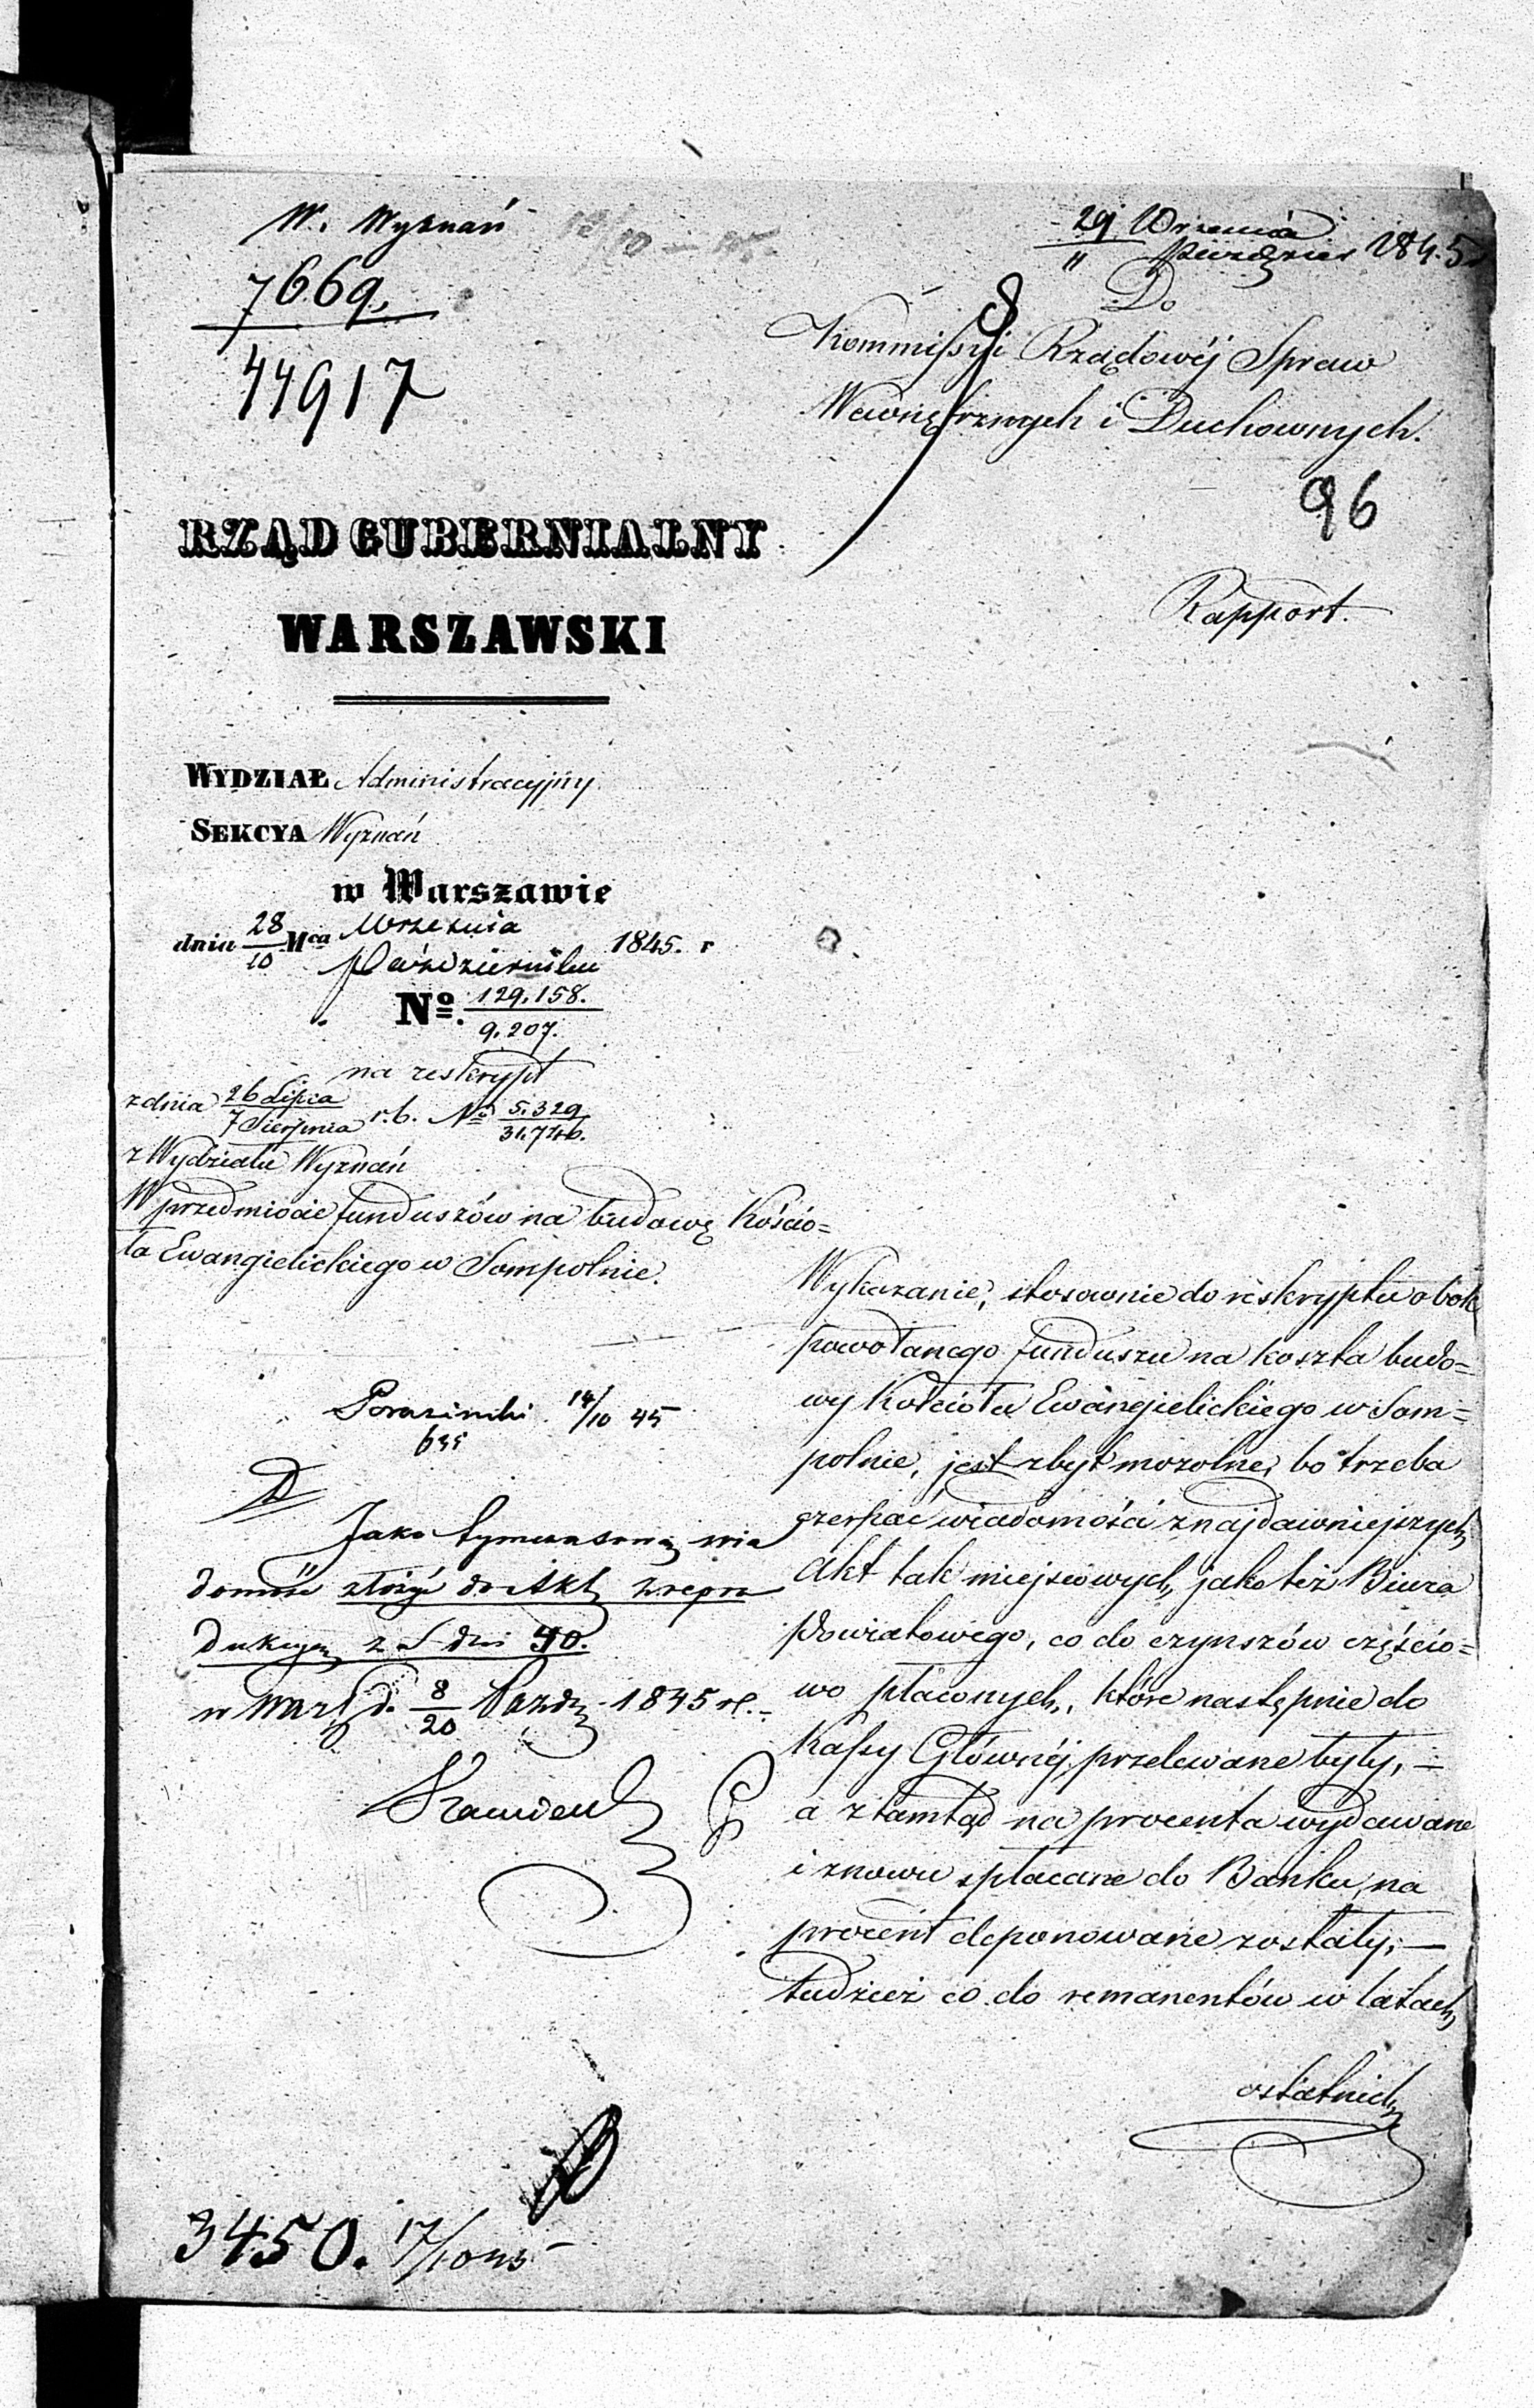 W. Wyznań
7669.
44917
29 Września
11 Paździer 1845 r
Do
Kommissyi Rządowéj Spraw
Wewnętrznych i Duchownych.
96
Rapport.
RZĄD GUBERNIALNY
WARSZAWSKI
WYDZIAŁ Administracyjny
SEKCYA Wyznań
w Warszawie
dnia 28/10 Mca Września Października 1845. r
No. 129,158./9,207.
na reskrypt
z dnia 26 Lipca/7 Sierpnia r.b. No 5,329/31,746.
z Wydziału Wyznań
W przedmiocie funduszów na budowę Kościo=
ła Ewangielickiego w Sompolnie.
14/10 45
635
Jako tymczasową wia
domość złożyć do Akt z repro
dukcyą z S dni 40.
w Warsz d. 8/20 Paźdz 1845 r.
Wykazanie, stosownie do reskryptu obok
powołanego funduszu na koszta budo=
wy Kościoła Ewangielickiego w Som=
polnie, jest zbyt mozolne, bo trzeba
czerpać wiadomości z najdawniejszych
Akt tak miejscowych, jako też Biura
Powiatowego, co do czynszów częścio=
wo płaconych, które następnie do
Kassy Głównéj przelewane były, —
a ztamtąd na procenta wydawane
i znowu spłacane do Banku, na
procent deponowane zostały; —
tudzież co do remanentów w latach
ostatnich
3450. 17/10 45